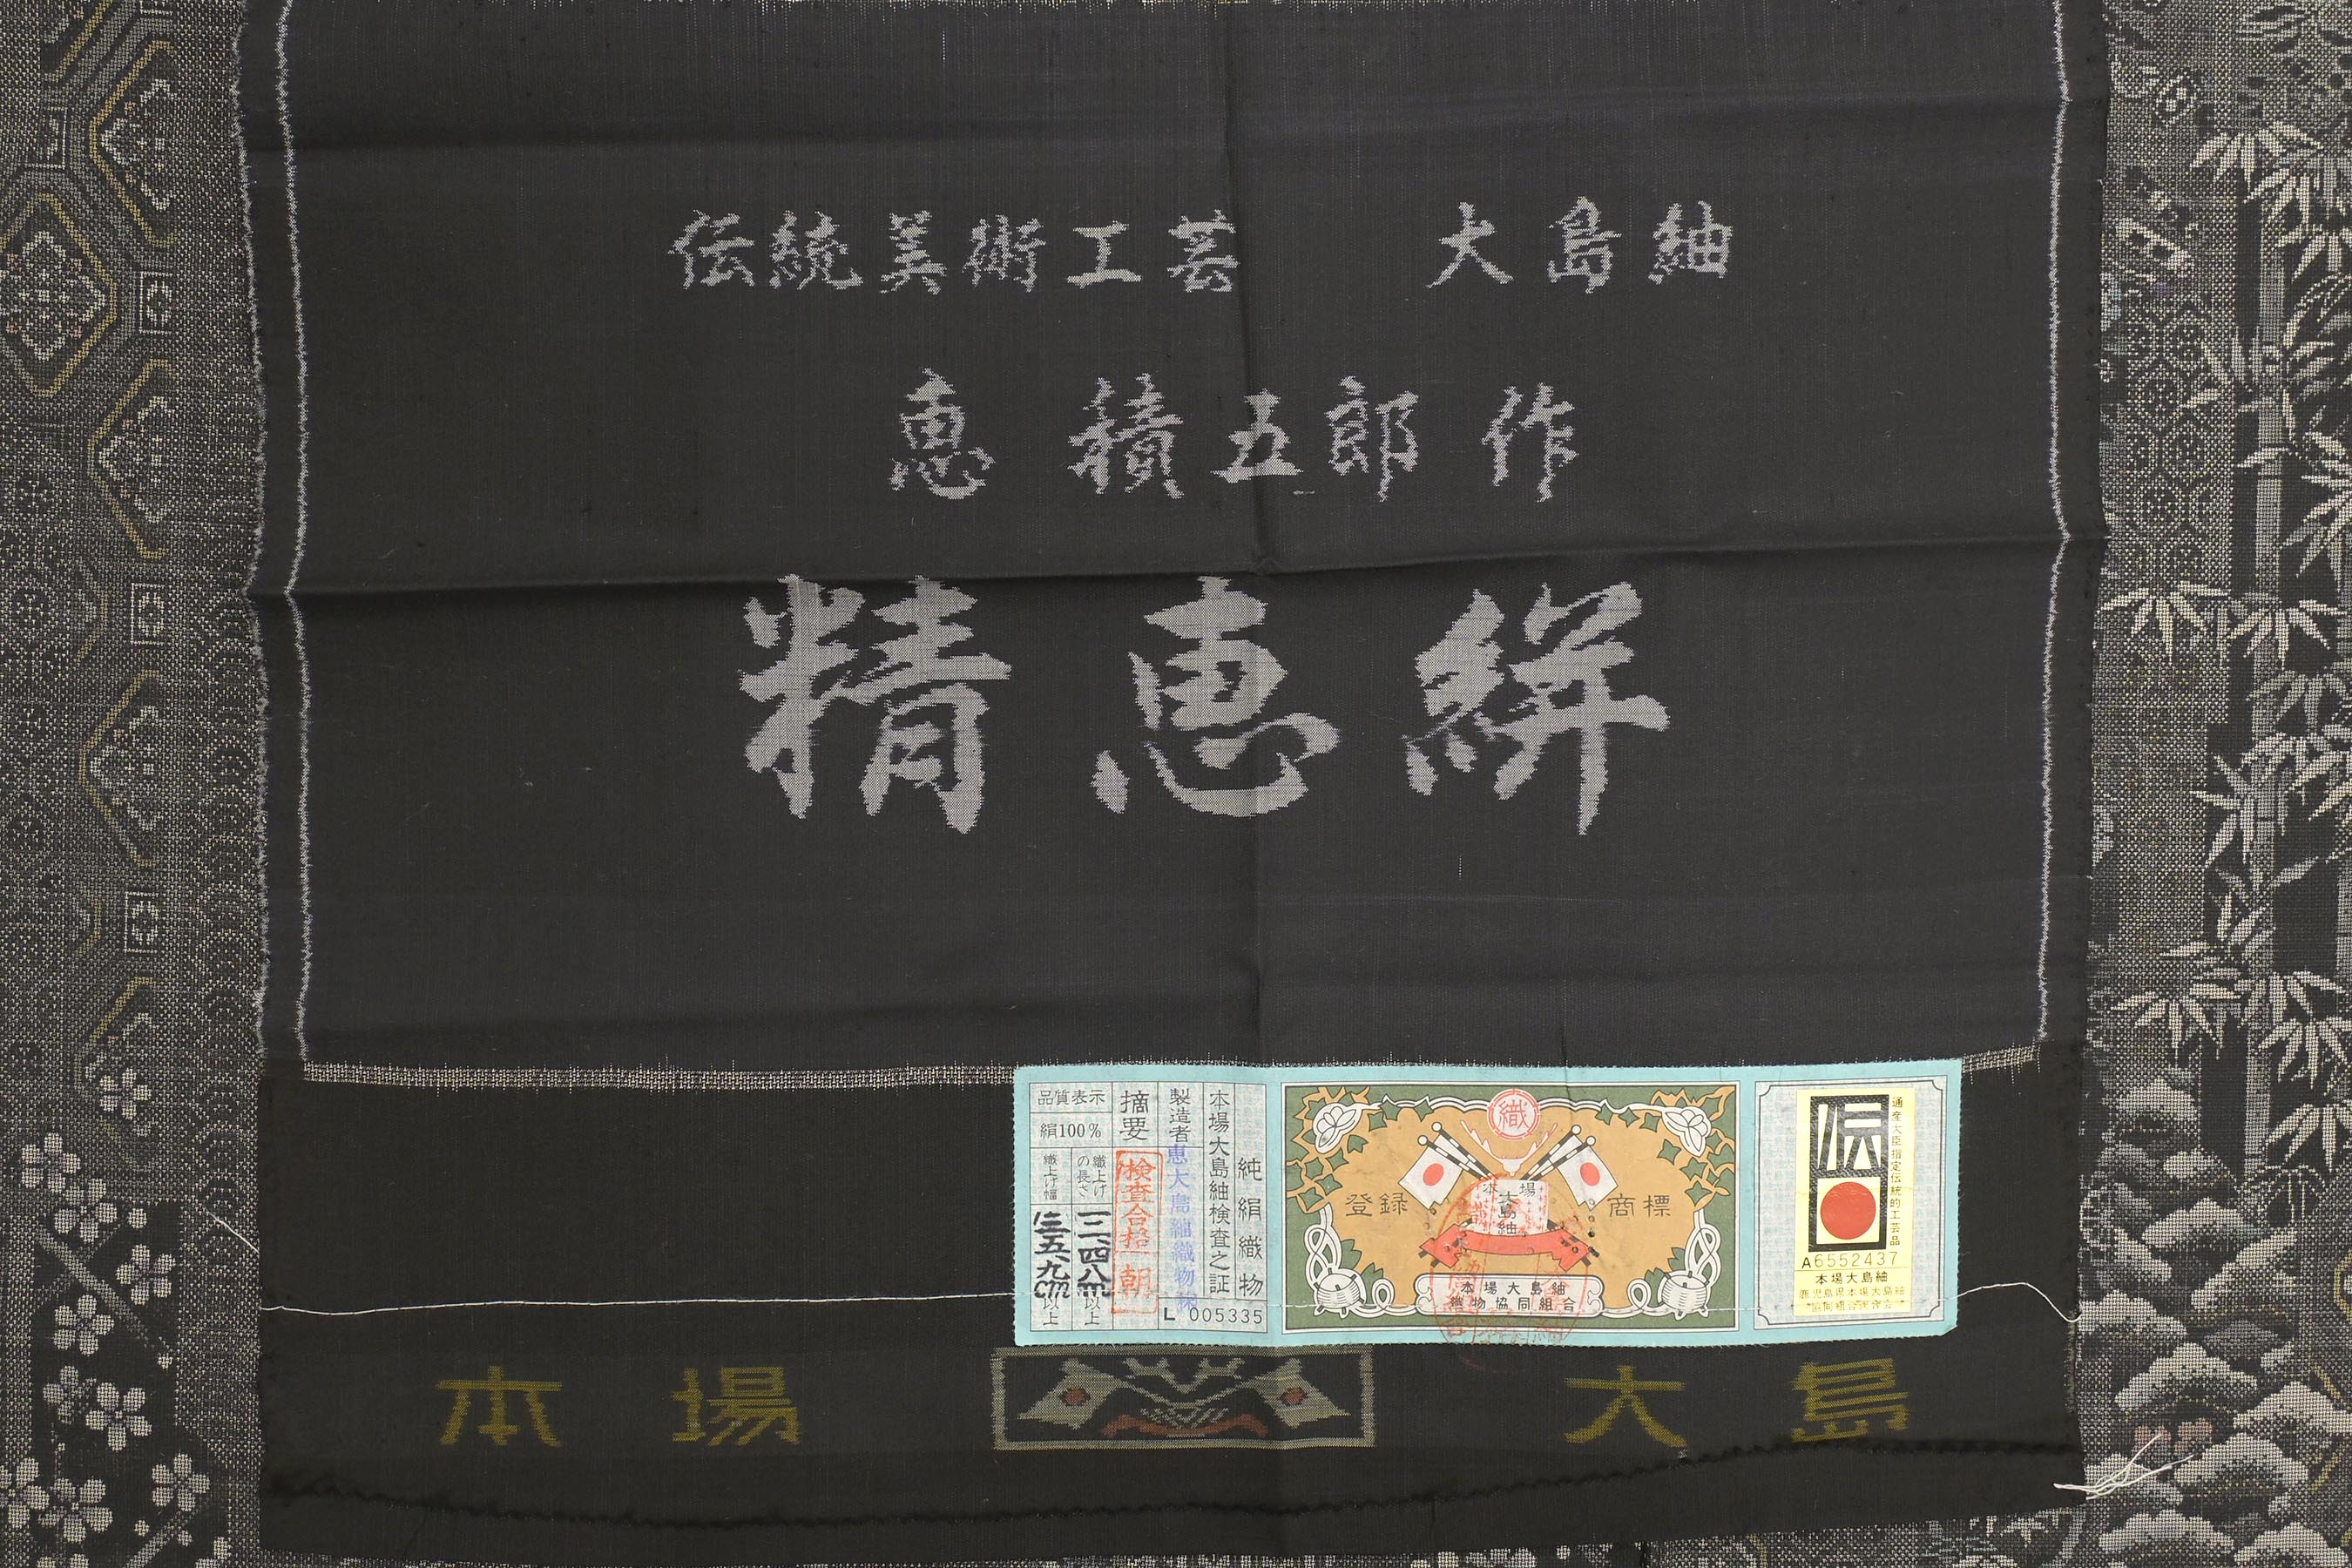 伝統美術工芸 大島紬
恵 積五郎 作
精恵絣
純絹織物
本場大島紬検査之証
製造者 恵大島紬織物
摘要 検査合格 朝
品質表示
絹100%
織上げの長さ 一二、四八m以上
織上げ幅 三五、九cm以上
L 005335
織
登録 商標
本場
大島紬
本場大島紬
織物協同組合
伝
通産大臣指定伝統的工芸品
A6552437
本場大島紬
鹿児島県本場大島紬
協同組合連合会
本場 大島